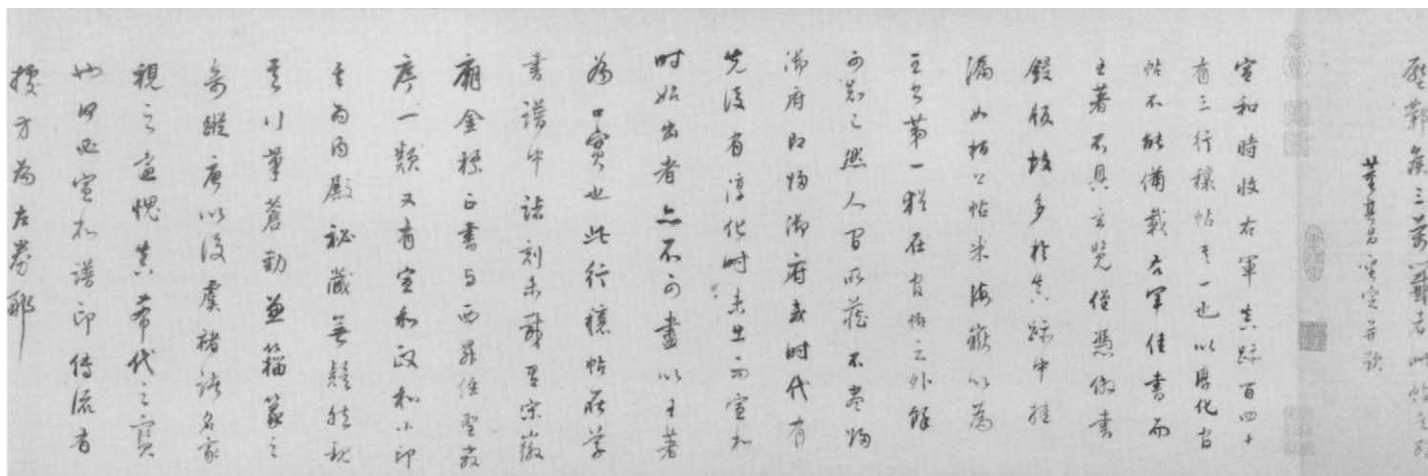 董其昌審定并跋
宣和時收右軍真跡百四十
有三行穰帖其一也以淳化官
帖不能備載右軍佳書而
王著不具玄覽僅憑倣書
鋟版故多於真跡中挂
漏如桓公帖米海嶽以為
王書第一猶在官帖之外餘
可知已然人間所藏不盡歸
御府即歸御府或時代有
先後有淳化時未出而宣和
時始出者亦不可盡以王著
為口實也此行穰帖在學
書譜中諸刻未載有宋徽
廟金標正書與西昇經聖教
序一類又有宣和政和小印
其為內殿秘藏無疑然觀
其行筆蒼勁兼籀篆之
奇蹤唐以後虞褚諸名家
視之盡愧真希代之寶
也何必宣和譜印傳流有
據方為左券耶